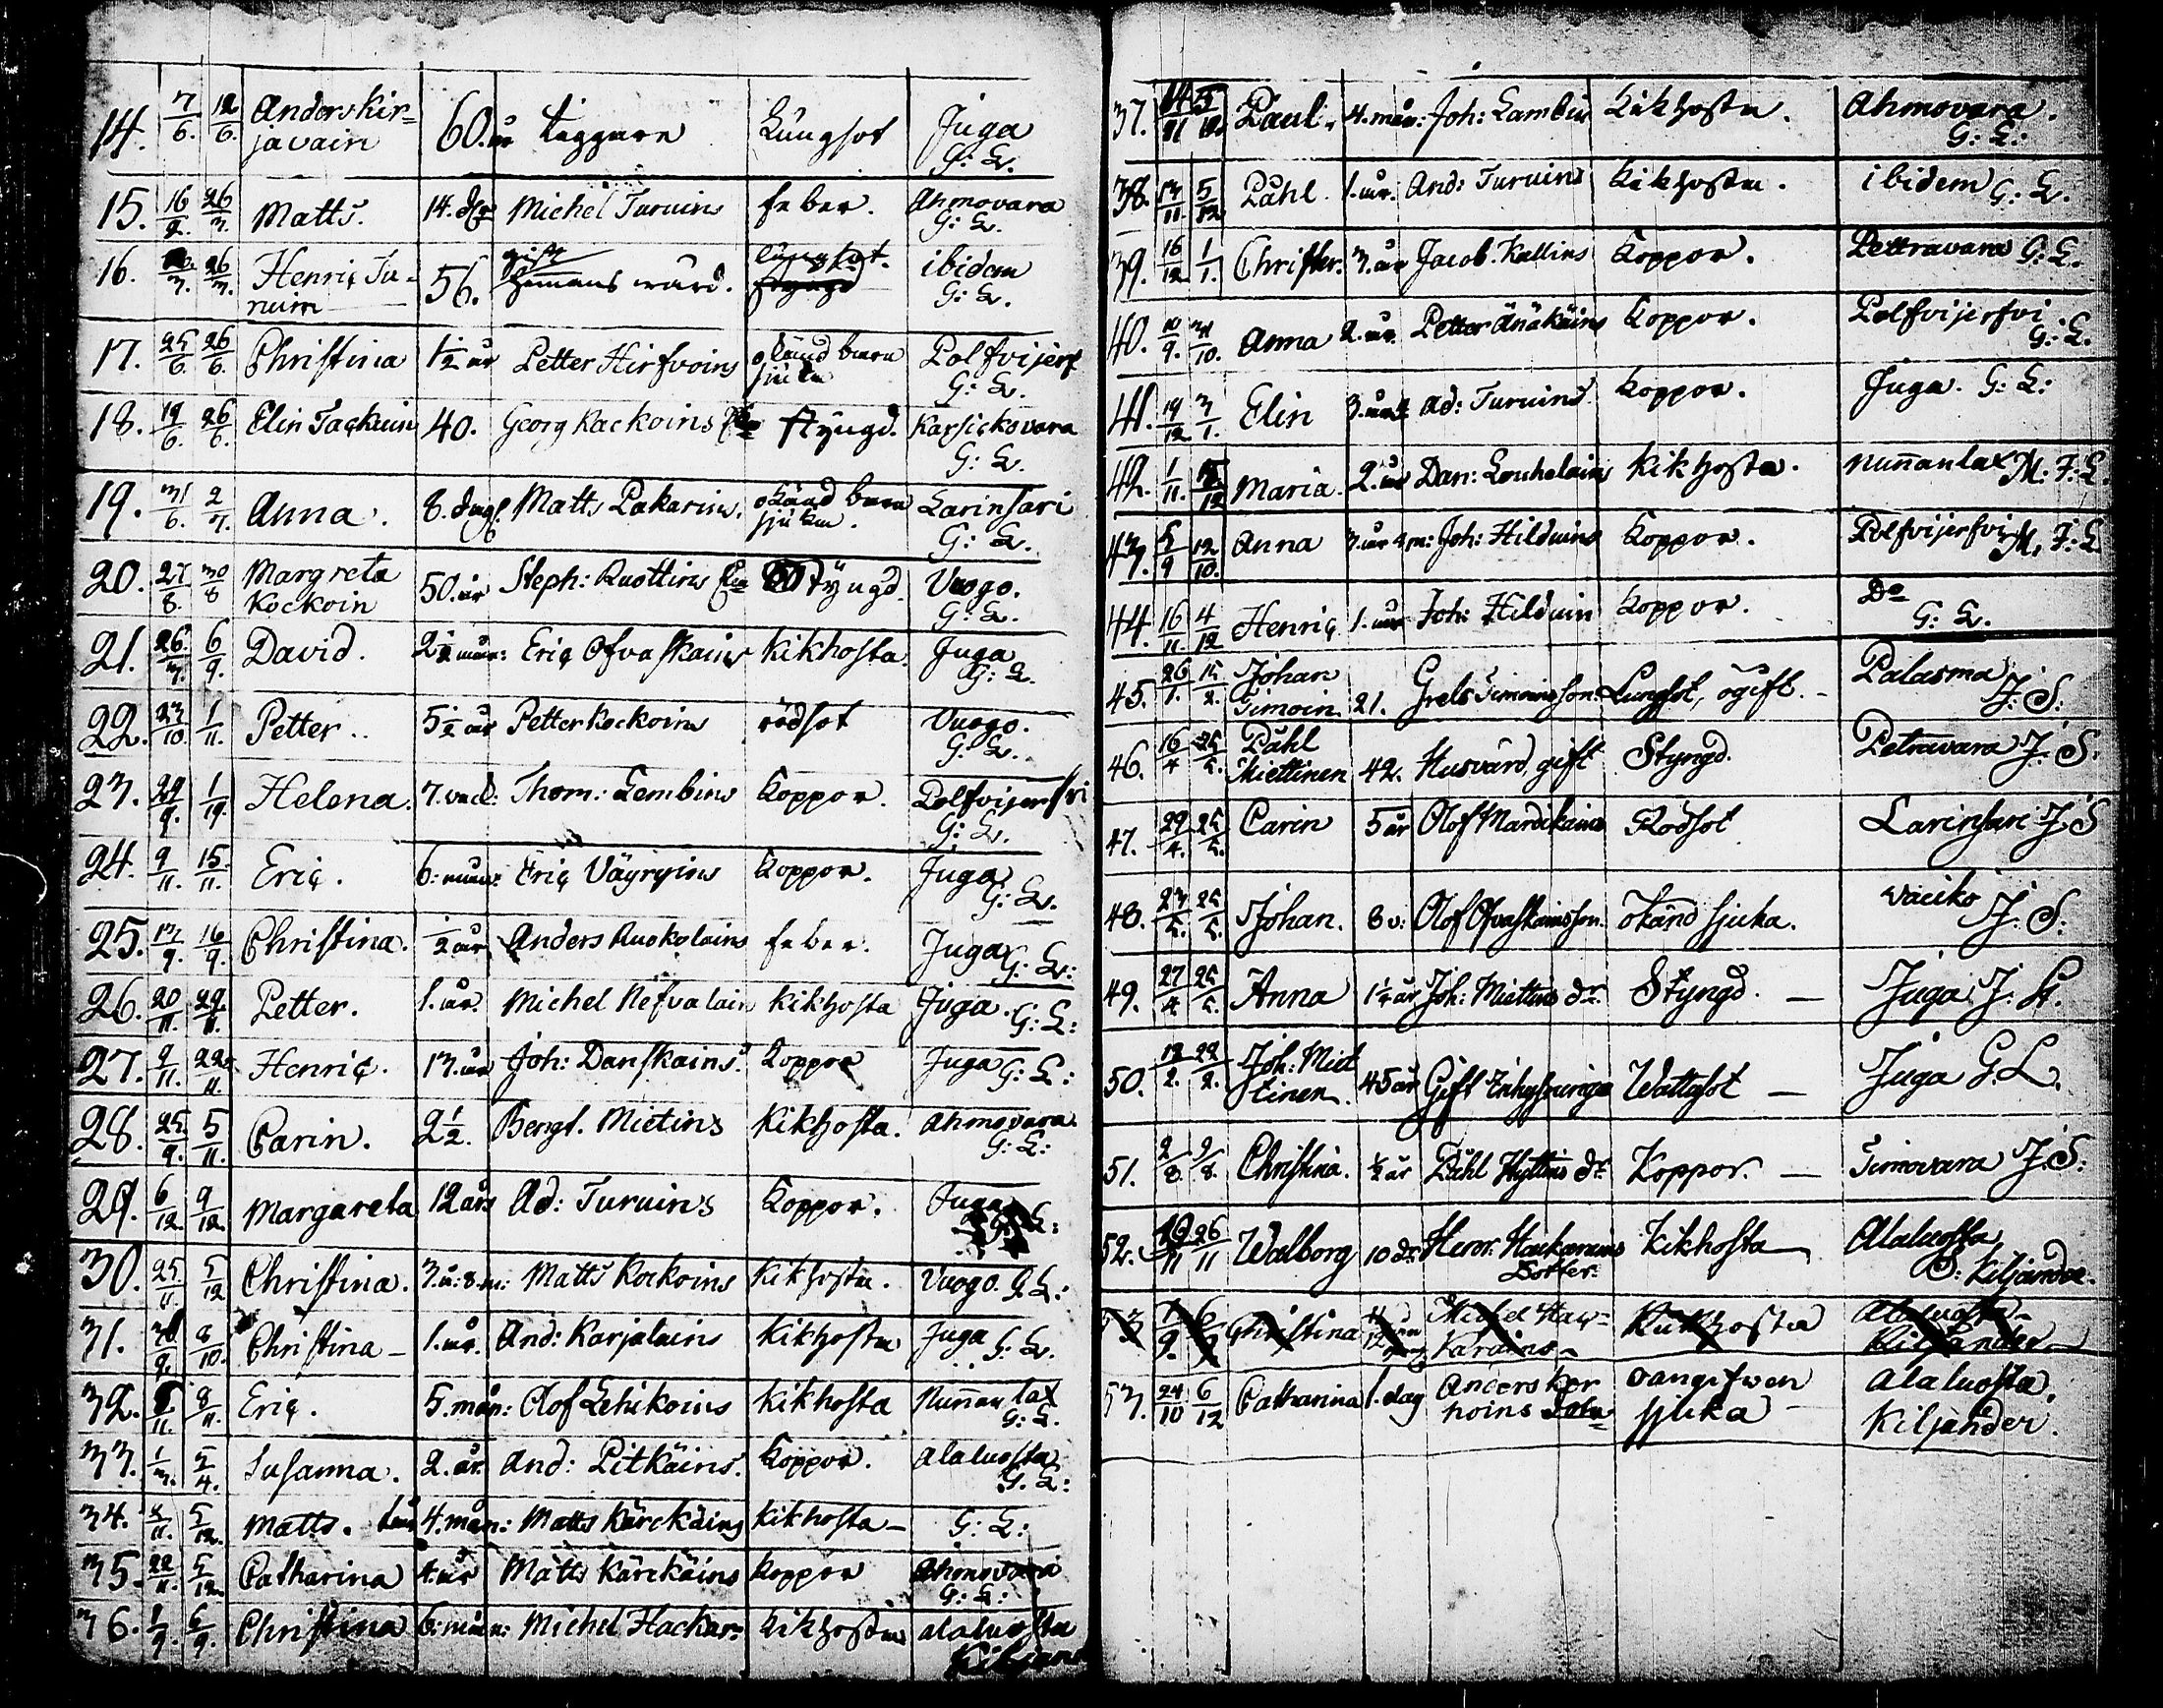 14. 7/6. 12/6. Anders Kir=javain 60. år tiggare Lungsot Juga G: L.
15. 16/2. 26/3. Matts. 14. dgr Michel Turuins feber. Ahmovara G: L.
16. 26/3. Henric Tu-ruin 56. gift hemmans wärd. lungsot. ibidem G: L.
17. 25/6. 26/6. Christina 1 1/2 år Petter Hirfvoins okänd barnsjuka Polfvijerf G: L.
18. 19/6. 26/6. Elin Tackuin 40. Georg Kackoins styngd. Karsickovara G: L.
19. 31/6. 2/7. Anna. 8. dag. Matts Pakarins. okänd barnsjuka. Larinsari G: L.
20. 27/8. 30/8 Margreta Kockoin 50. år Steph: Ruottins styngd. Vuogo. G: L.
21. 26./7. 6/9. David. 2 1/2 mån: Eric Ofvaskains kikhosta. Juga G: L.
22. 23/10. 1/11. Petter.. 5 1/2 år Petter Kockoins rödsot Vuogo. G: L.
23. 29/9. 1/19. Helena. 7. veck: Thom: Lembins Koppor. Polfvijerfvi G: L.
24. 9/11. 15./11. Eric. 6: mån: Eric Väyryins Koppor. Juga G: L.
25. 13/9. 16/9. Christina. 1/2 år Anders Ruokolains feber. Juga G: L:
26. 20/11. 29./11. Petter. 1. år. Michel Nefvalain kikhosta Juga. G: L:
27. 9/11. 22./11. Henric. 13. år Joh: Danskains. Koppor Juga G: L:
28. 25./9. 5/11. Carin. 2 1/2. Bengt. Mietins Kikhosta. Ahmovara. G: L:
29. 6/12. 9/12. Margareta 12 års Ad: Turuins Koppor. Juga L:
30. 25/11. 5/12 Christina. 3. å: 8. m: Matts Kockoins kikhosta. Vuogo. G L:
31. 30/9. 8/10. Christina - 1. år. And: Karjalains Kikhosta Juga G: L.
32. 11. 8/11. Eric. 5. mån: Olof Lehikoins Kikhosta Nunnanlax G: L.
33. 1/3. 5/4. Susanna. 2. år. And: Pitkäins. Koppor. Alaluosta G: L:
34. 11. 5/12. Matts. 4. mån: Matts Kärckäins kikhosta - G: L:
35. 22/11. 5/12. Catharina 4. år Matts Kärckäins Koppor Ahmovara G: L:
36. 1/9. 6/9. Christina 6: mån: Michel Hackar= kikhosta alaluosta
37. 5/12. Paul. 4. mån: Joh: Lambin Kikhosta. Ahmovara. G: L:
38. 13/11. 5/12 Påhl. 1. år. And: Turuins Kikhosta. ibidem G: L.
39. 16/12 1/1. Christer. 3. år Jacob. Kallins Koppor. Pettravara G: L.
40. 10/9. 31/10. Anna 2. år. Petter Änäkäins Koppor. Polfvijerfvi G: L.
41. 19/12 3/1. Elin Ad: Turuins Koppor. Juga. G: L:
42. 1/11. 15/12 Maria. 2. år Dan: Louhelains Kikhosta. Nunnanlax M. F: L.
43. 5/9 12/10. Anna 3. år 4 m: Joh: Hilduins Koppor. Polfvijerfvi M, F: L
44. 16/11. 4/12 Henric 1. år Joh: Hilduin Koppor. Do G: L.
45. 26/1. 15/2. Johan Simoin 21. Grels Simoins son. Lungsot, ogift. - Palasma J: S:
46. 16/4 25/5. Påhl Miettinen 42. Husvärd gift Styngd. Petravara J: S.
47. 29/4. 25/5. Carin 5 år Olof Mardikains Rödsot Larinsari J: S
48. 23/5. 25/5. Johan. 8 v: Olof Ofvaskains son. Okänd sjuka. Vaciko J: S:
49. 27/4 25/5. Anna 1 1/4 år Joh: Miettins dr. Styngd. - Juga J: St.
50. 12/2. 22/2. Joh: Miettinen. 45 år Gift Inhysinge Wattusot - Juga G. L.
51. 2/8 9/8. Christina. 1/2 år Påhl Hyttins dr Koppor. - Timovara J. S:
52. 19/11 26/11 Walborg 10 dr. Herr. Haukarains Dotter. Kikhosta Alaluosta D: Kiljander.
53 1/9. 6/9 Christina Michel Hac=karains - Kikhosta Alaluosta - Kiljander
53. 24/10 6/12 Catharina 1. dag Anders Kor hoins oangifven sjuka - Alaluosta. Kiljander.